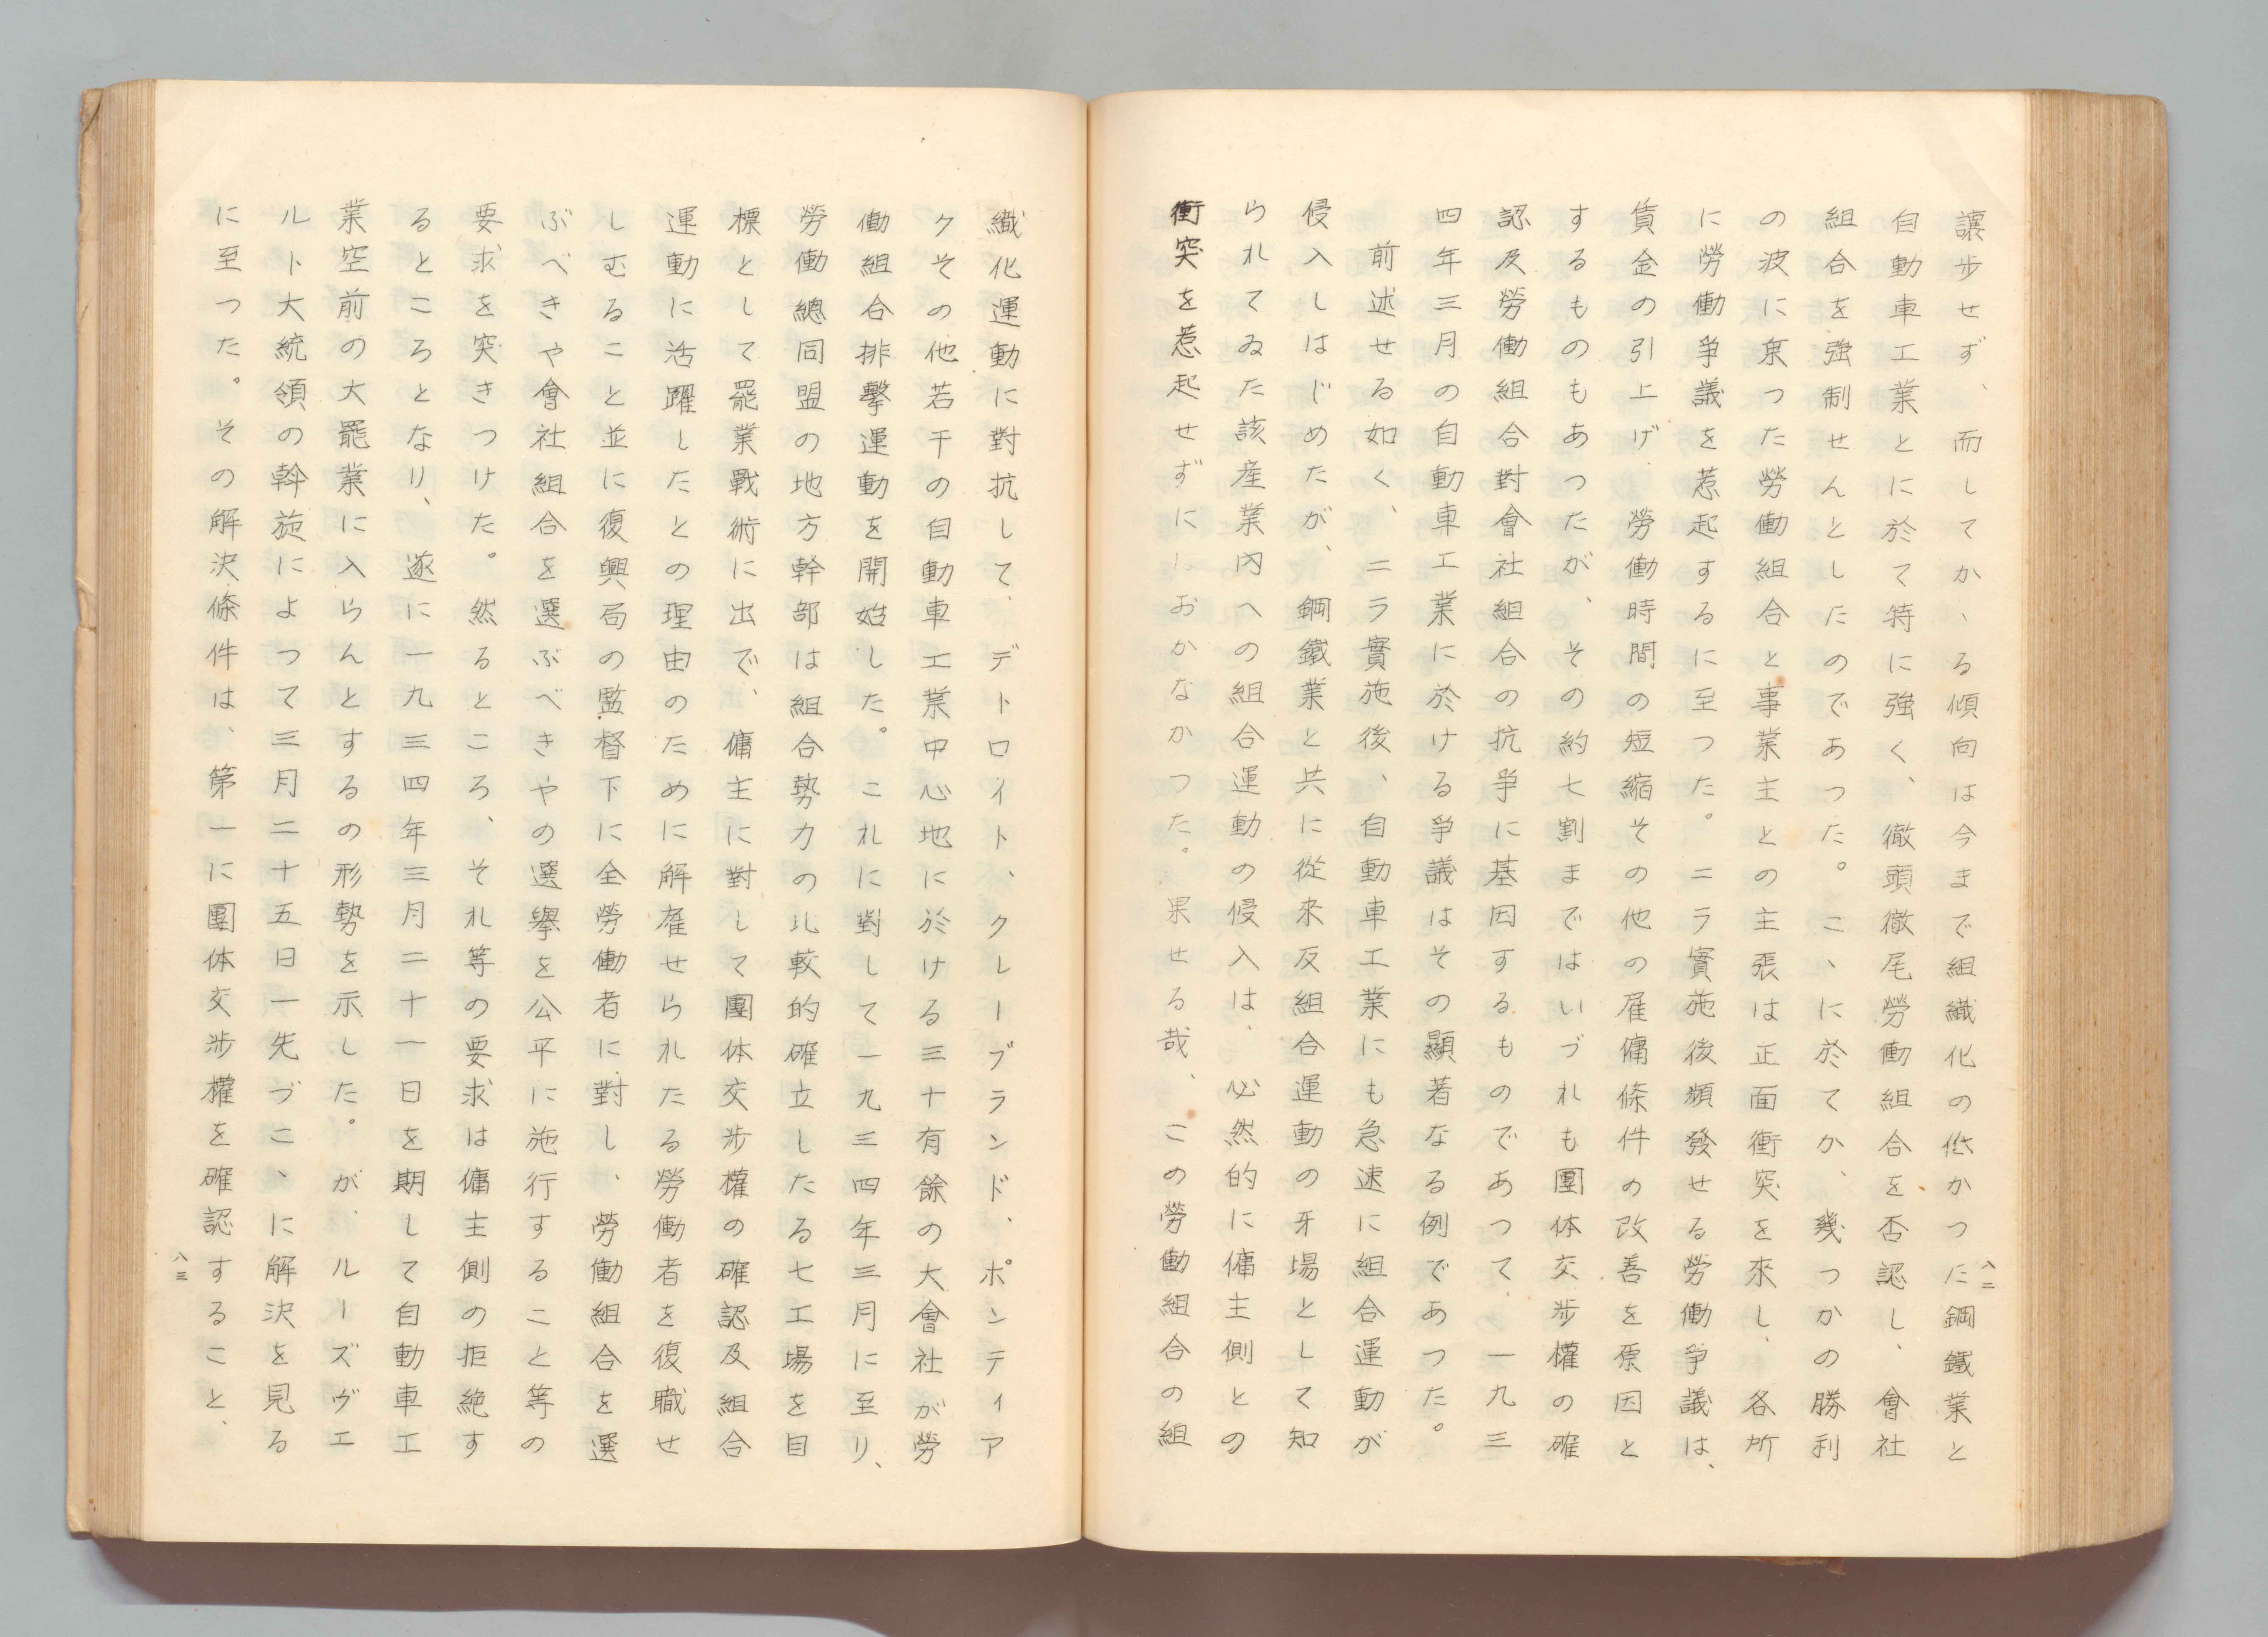 讓步せず、而してかゝる傾向は今まで組織化の低かつた鋼鐵業と
自動車工業とに於て特に強く、徹頭徹尾勞働組合を否認し、會社
組合を強制せんとしたのであつた。こゝに於てか、幾つかの勝利
の波に乘つた勞働組合と事業主との主張は正面衝突を來し、各所
に勞働爭議を惹起するに至つた。ニラ實施後頻發せる勞働爭議は、
賃金の引上げ勞働時間の短縮その他の雇傭條件の改善を原因と
するものもあつたが、その約七割まではいづれも團体交涉權の確
認及勞働組合對會社組合の抗爭に基因するものであつて、一九三
四年三月の自動車工業に於ける爭議はその顯著なる例であつた。
前述せる如く、ニラ實施後、自動車工業にも急速に組合運動が
侵入しはじめたが、鋼鐵業と共に從來反組合運動の牙場として知
られてゐた該産業內への組合運動の侵入は、必然的に傭主側との
衝突を惹起せずにはおかなかつた。果せる哉、この勞働組合の組
八二
織化運動に對抗して、デトロイト、クレーブランド、ポンティア
クその他若干の自動車工業中心地に於ける三十有餘の大會社が勞
働組合排擊運動を開始した。これに對して一九三四年三月に至り、
勞働總同盟の地方幹部は組合勢力の比較的確立したる七工場を目
標として罷業戰術に出で、傭主に對して團体交涉權の確認及組合
運動に活躍したとの理由のために解雇せられたる勞働者を復職せ
しむること並に復興局の監督下に全勞働者に對し、勞働組合を選
ぶべきや會社組合を選ぶべきやの選擧を公平に施行すること等の
要求を突きつけた。然るところ、それ等の要求は傭主側の拒絶す
るところとなり、遂に一九三四年三月二十一日を期して自動車工
業空前の大罷業に入らんとするの形勢を示した。が、ルーズヴエ
ルト大統領の斡旋によつて三月二十五日一先づこゝに解決を見る
に至つた。その解決條件は、第一に團体交涉權を確認すること、
八三